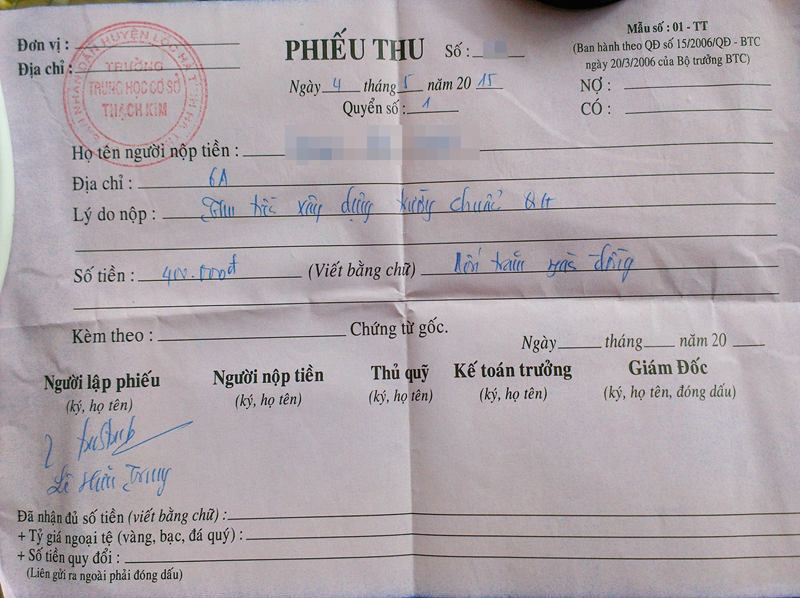 Đơn vị :
Địa chỉ :
PHIẾU THU Số :
Mẫu số : 01 - TT
(Ban hành theo QĐ số 15/2006/QĐ - BTC
ngày 20/3/2006 của Bộ trưởng BTC)
Ngày 4 tháng 5 năm 2015
Quyển số : 1
NỢ :
CÓ :
TRƯỜNG
TRUNG HỌC CƠ SỞ
THẠCH KIM
Họ tên người nộp tiền :
Địa chỉ : 6A
Lý do nộp : Thu xây dựng trường chuẩn QG
Số tiền : 400.000đ (Viết bằng chữ) đồng
Kèm theo : Chứng từ gốc.
Ngày tháng năm 20
Người lập phiếu Người nộp tiền Thủ quỹ Kế toán trưởng Giám Đốc
(ký, họ tên) (ký, họ tên) (ký, họ tên) (ký, họ tên) (ký, họ tên, đóng dấu)
Lê Hữu Trung
Đã nhận đủ số tiền (viết bằng chữ) :
+ Tỷ giá ngoại tệ (vàng, bạc, đá quý) :
+ Số tiền quy đổi :
(Liên gửi ra ngoài phải đóng dấu)